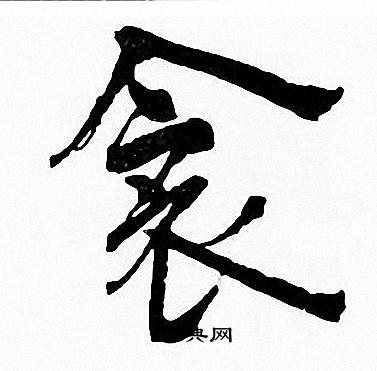 衾
典网